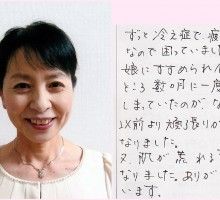 ずっと冷え症で、疲
なので困っていました
娘にすすめられ
ところ数ヵ月に一度
しまっていたのが、な
前より頑張りが
なりました。
又、肌が荒れる
なりました。ありが
います。